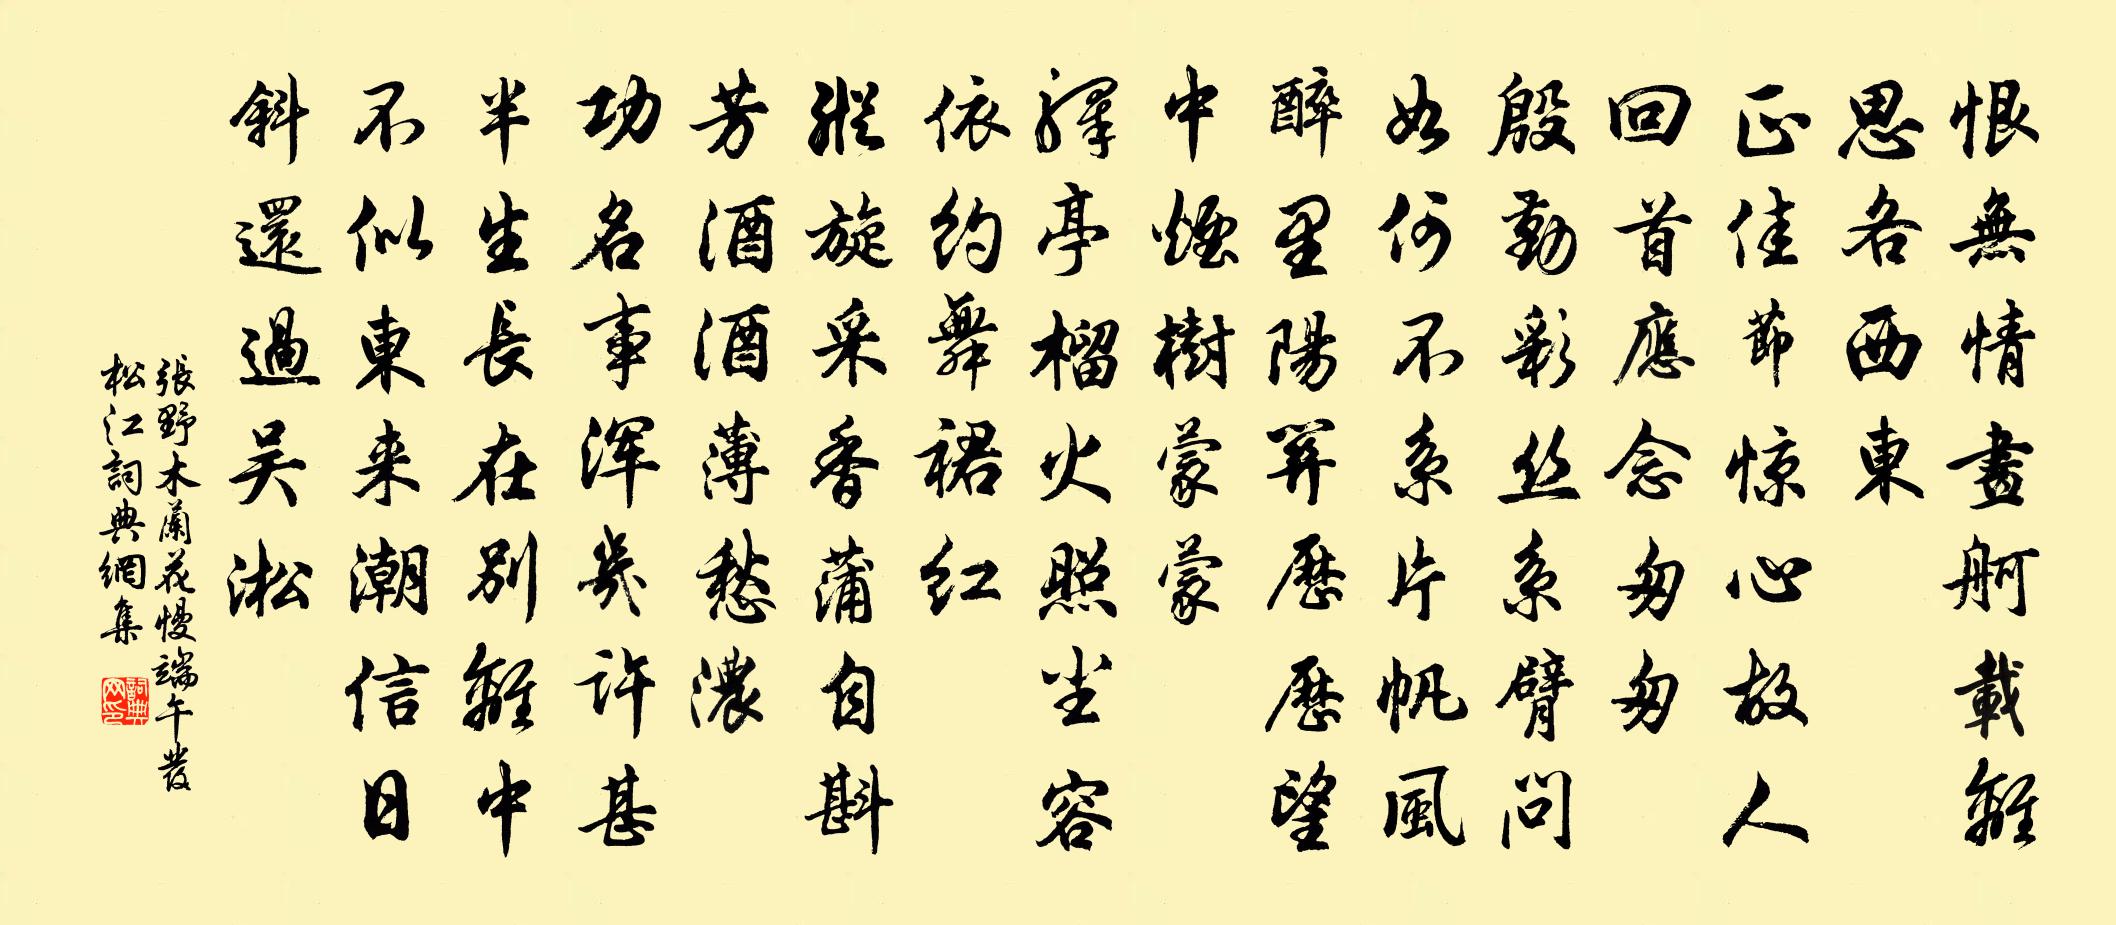 恨無情畫舸載離
思各西東
正佳節惊心故人
回首應念匆匆
殷勤彩丝系臂問
如何不系片帆風
醉里陽関歷歷望
中煙樹蒙蒙
驛亭榴火照尘容
依約舞裙红
縱旋采香蒲自斟
芳酒酒薄愁濃
功名事浑幾许甚
半生長在别離中
不似東来潮信日
斜還過吴淞
張野木蘭花慢端午發
松江詞典網集
詞典网印